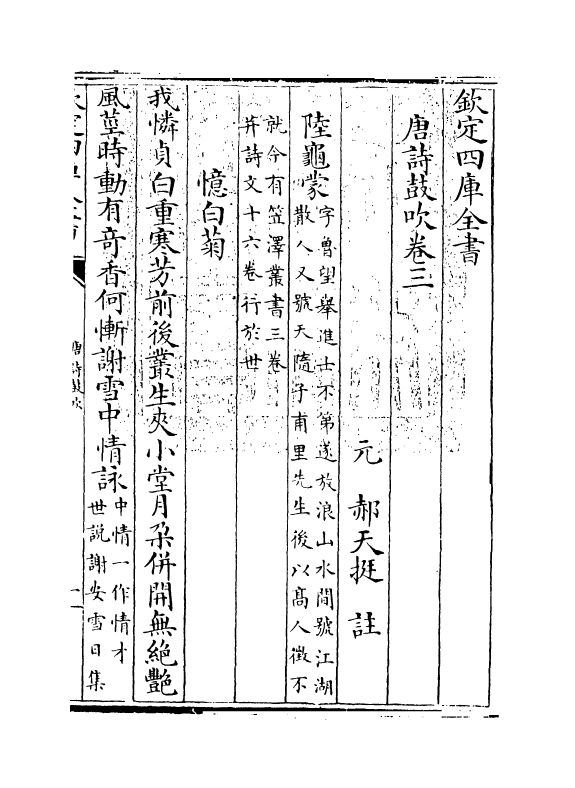 欽定四庫全書
唐詩鼓吹卷三
元　郝天挺　註
陸龜蒙字魯望舉進士不第遂放浪山水間號江湖
散人又號天隨子甫里先生後以髙人徵不
就今有笠澤叢書三卷
并詩文十六卷行於世
憶白菊
我憐貞白重寒芳前後叢生夾小堂月朶併開無絶艷
風莖時動有竒香何慚謝雪中情詠中情一作情才
世説謝安雪日集
唐詩鼓吹
一